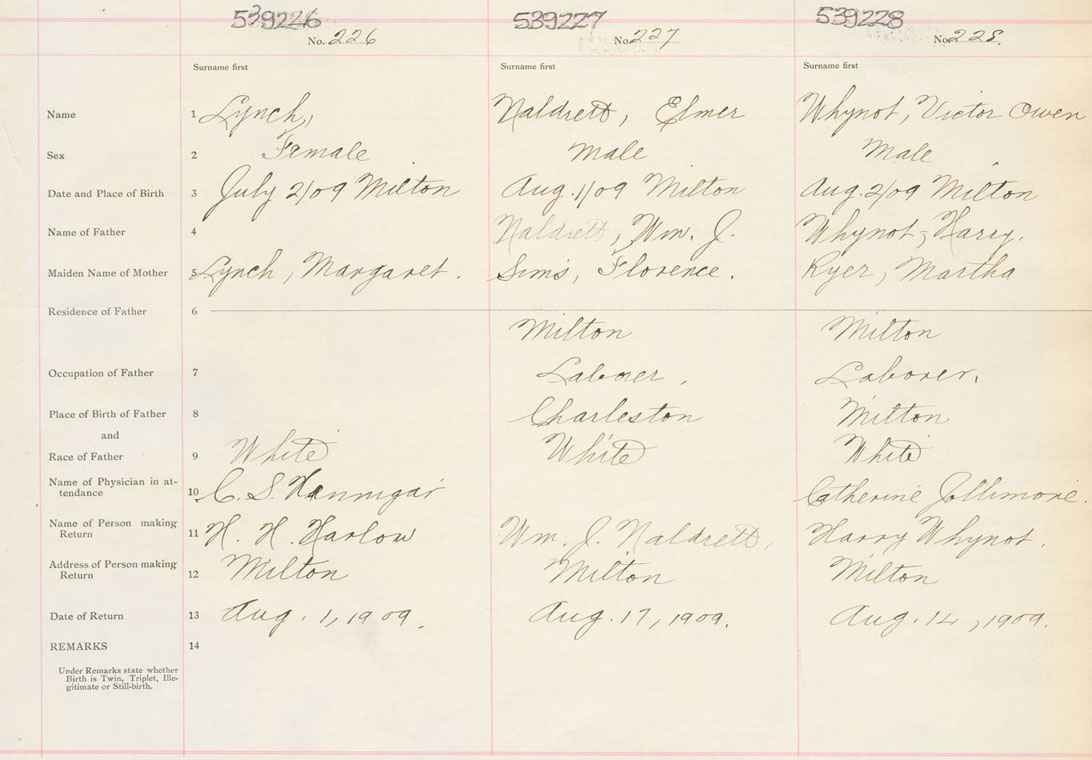 539226 539227 539228
No. 226 No. 227 No. 228.
Surname first Surname first Surname first
Name 1 Lynch, Naldrett, Elmer Whynot, Victor Owen
Sex 2 Female Male Male
Date and Place of Birth 3 July 2/09 Milton Aug. 1/09 Milton Aug. 2/09 Milton
Name of Father 4 Naldrett, Wm. J. Whynot, Harry.
Maiden Name of Mother 5 Lynch, Margaret. Sims, Florence. Ryer, Martha
Residence of Father 6 Milton Milton
Occupation of Father 7 Laborer, Laborer.
Place of Birth of Father 8 Charleston Milton
and
Race of Father 9 White White White
Name of Physician in at-
tendance 10 C. S. Hennigar Catherine Jollimore
Name of Person making
Return 11 H. H. Harlow Wm. J. Naldrett, Harry Whynot.
Address of Person making
Return 12 Milton Milton Milton
Date of Return 13 Aug. 1, 1909. Aug. 17, 1909. Aug. 14, 1909.
REMARKS 14
Under Remarks state whether
Birth is Twin, Triplet, Ille-
gitimate or Still-birth.